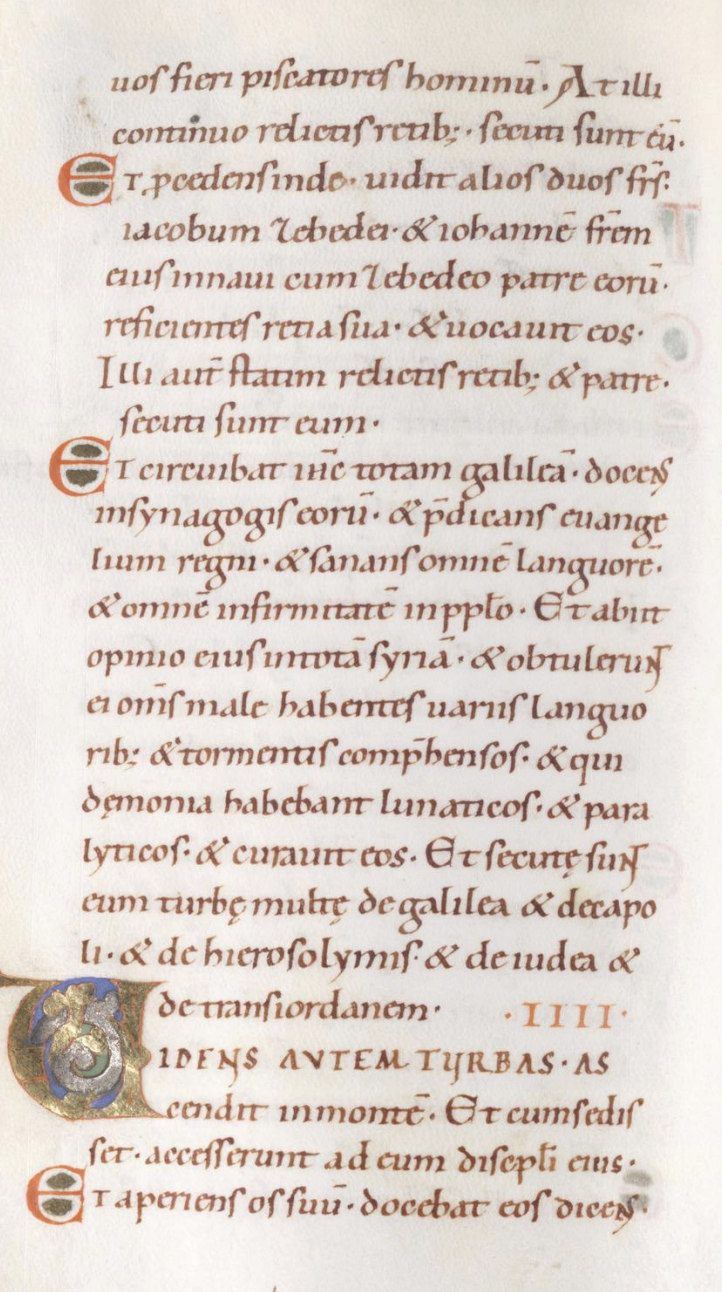 uos fieri piscatores hominū· At illi
continuo relictis retib;· secuti sunt eū·
Et ꝓcedens inde· uidit alios duos fr̄s·
iacobum zebedei· & iohannē fr̄em
eius in naui cum zebedeo patre eorū·
reficientes retia sua· & uocauit eos·
Illi aut̄ statim relictis retib; & patre·
secuti sunt eum·
Et circuibat ih̄c totam galileā· docens
in synagogis eorū· & p̄dicans euange
lium regni· & sanans omnē languorē·
& omnē infirmitatē in ppl̄o· Et abiit
opinio eius in totā syriā· & obtulerunt
ei om̄s male habentes uariis languo
rib; & tormentis comp̄hensos· & qui
dęmonia habebant lunaticos· & para
lyticos· & curauit eos· Et secutę sunt
eum turbę multę de galilea & decapo
li· & de hierosolymis· & de iudea &
de transiordanem· ·IIII·
VIDENS AVTEM TURBAS· AS
cendit in montē· Et cum sedis
set· accesserunt ad eum discpl̄i eius·
Et aperiens os suū· docebat eos dicens·